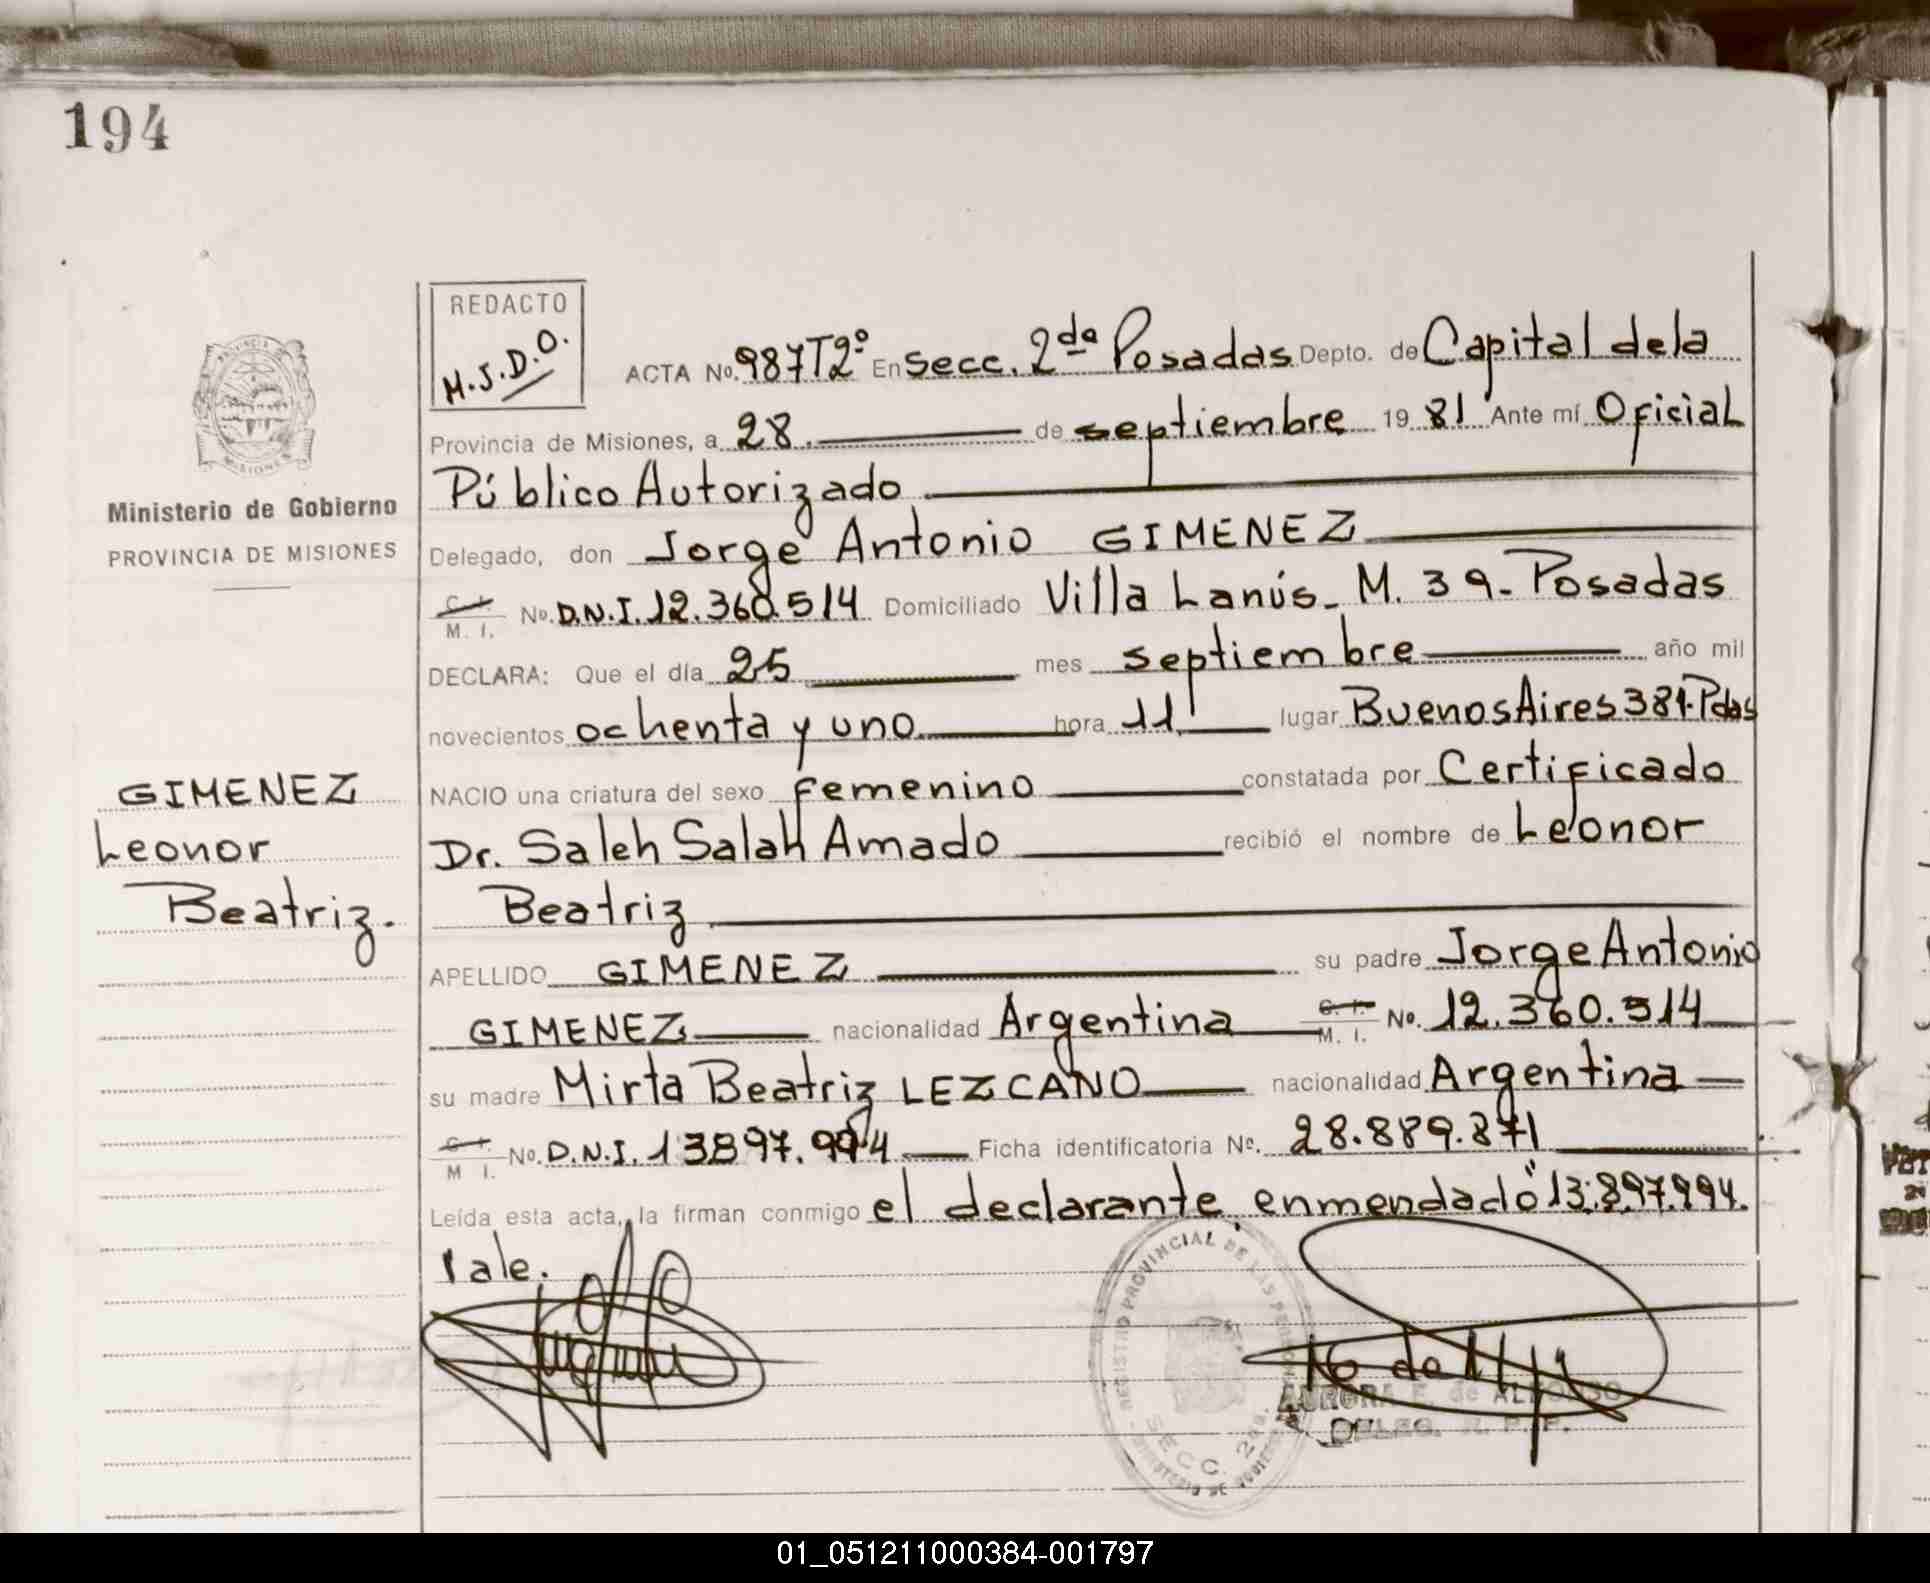 194
REDACTO
M.J.D.O.
ACTA No. 987T2º En Secc. 2da Posadas Depto. de Capital de la
Provincia de Misiones, a 28 de septiembre 19 81 Ante mí Oficial
Público Autorizado
Ministerio de Gobierno
PROVINCIA DE MISIONES
Delegado, don Jorge Antonio GIMENEZ
C. I. M. I. No. D.N.I. 12.360.514 Domiciliado Villa Lanús - M. 39 - Posadas
DECLARA: Que el día 25 mes septiembre año mil
novecientos ochenta y uno hora 11 lugar Buenos Aires 381. Pdas
GIMENEZ
Leonor
Beatriz.
NACIO una criatura del sexo femenino constatada por Certificado
Dr. Saleh Salah Amado recibió el nombre de Leonor
Beatriz
APELLIDO GIMENEZ su padre Jorge Antonio
GIMENEZ nacionalidad Argentina C. I. M. I. No. 12.360.514
su madre Mirta Beatriz LEZCANO nacionalidad Argentina
C. I. M I. No. D.N.I. 13897.994 Ficha identificatoria No. 28.889.871
Leída esta acta, la firman conmigo el declarante. enmendado "13.897.994.
Vale.
REGISTRO PROVINCIAL DE LAS PERSONAS
SECC. 2da.
MINISTERIO DE GOBIERNO
AURORA E. de ALFONSO
DELEG. R. P. P.
01_051211000384-001797